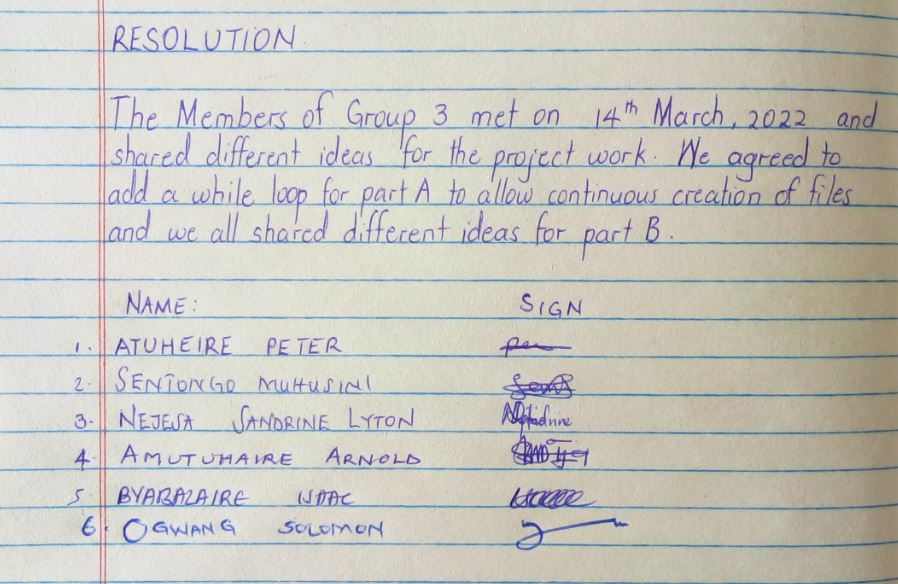 RESOLUTION
The Members of Group 3 met on 14th March, 2022 and
shared different ideas for the project work. We agreed to
add a while loop for part A to allow continuous creation of files
and we all shared different ideas for part B.
NAME: SIGN
1. ATUHEIRE PETER
2. SENTONGO MUHUSINI
3. NEJESA SANDRINE LYTON
4. AMUTUHAIRE ARNOLD
5. BYABAZAIRE ISAAC
6. OGWANG SOLOMON